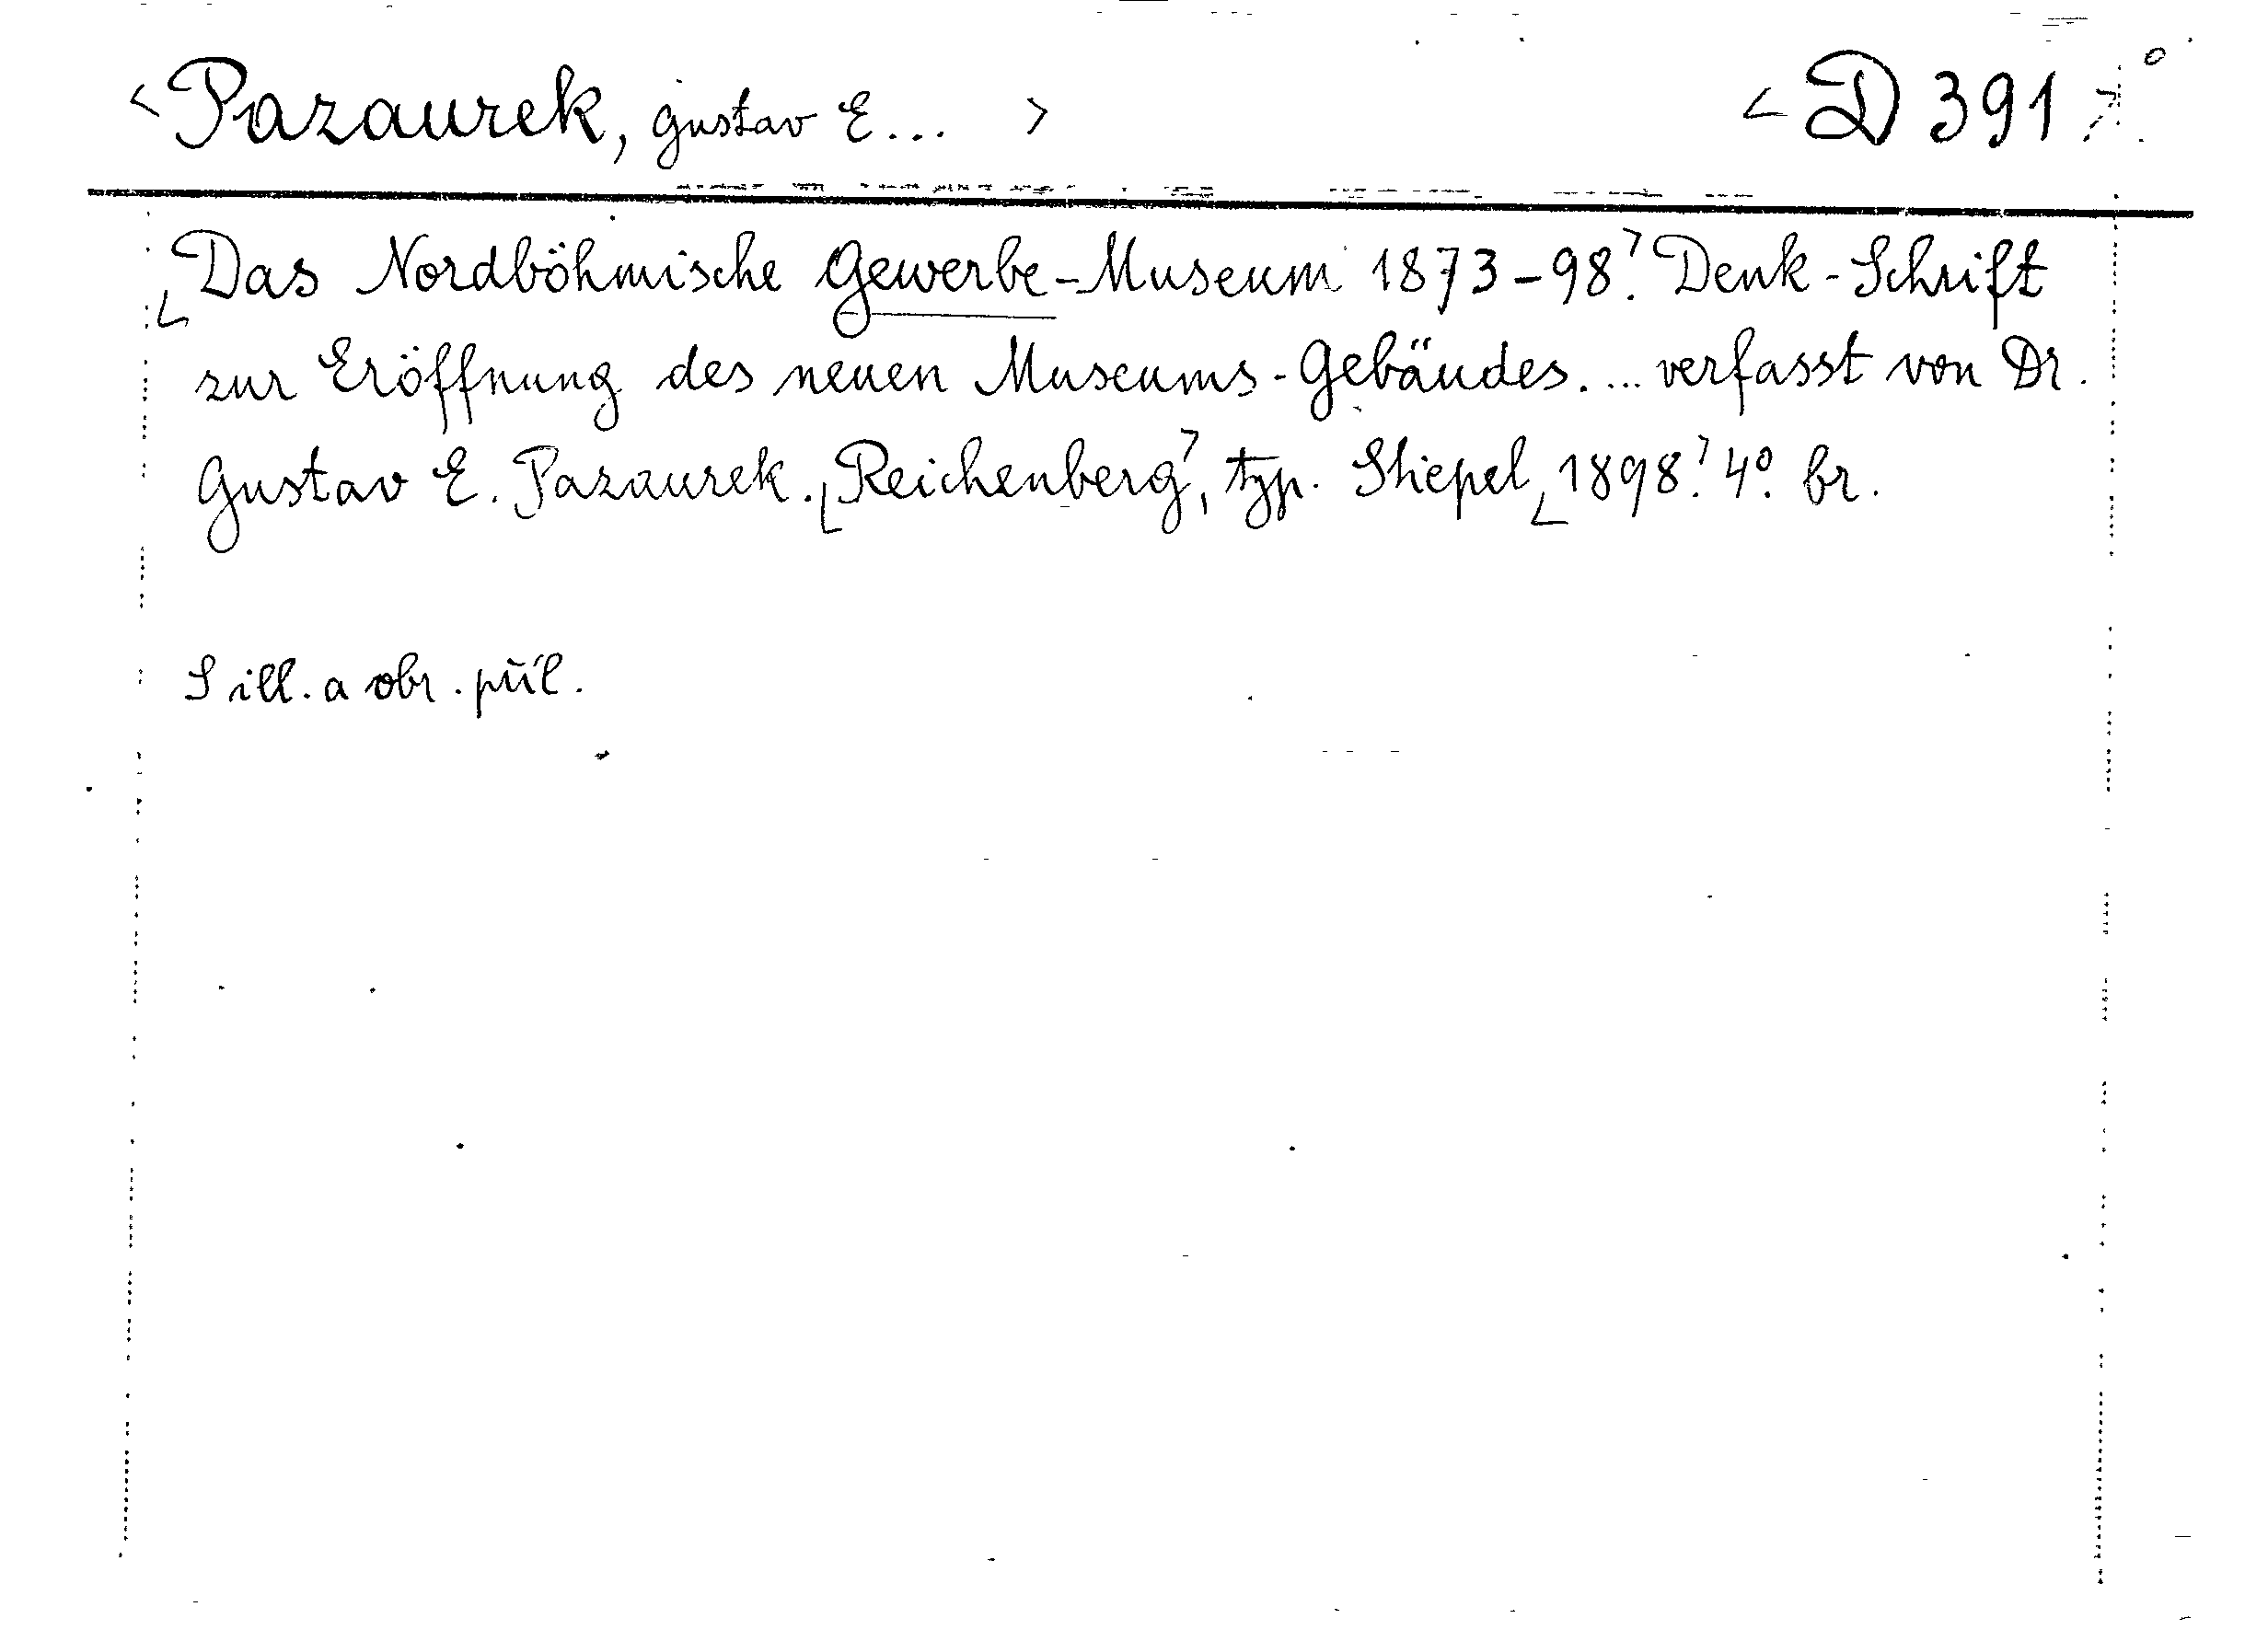 <Pazaurek, Gustav E... > <D 391>
<Das Nordböhmische Gewerbe-Museum 1873-98>. Denk-Schrift
zur Eröffnung des neuen Museums-Gebäudes. ... verfasst von Dr.
Gustav E. Pazaurek. <Reichenberg>, typ. Stiepel <1898>. 4°. br.
S ill. a obr. příl.